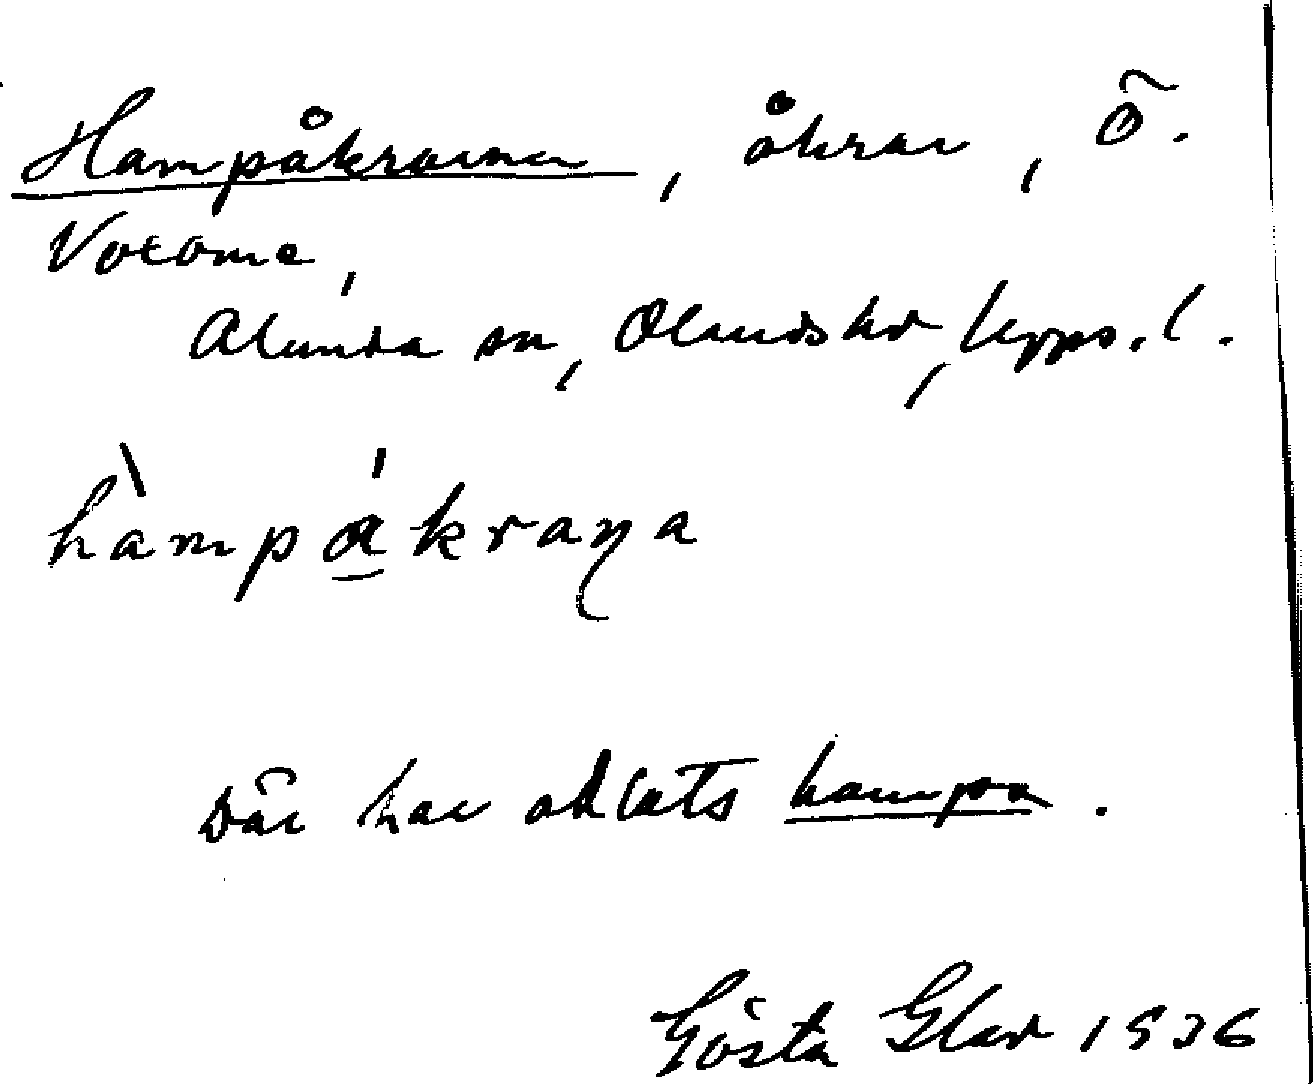 Hampåkrarna, åkrar, Ö.
Voxome,
Alunda sn, Olands hd, Upps. l.
hàmpákraŋa
Där har odlats hampa.
Gösta Glad 1936